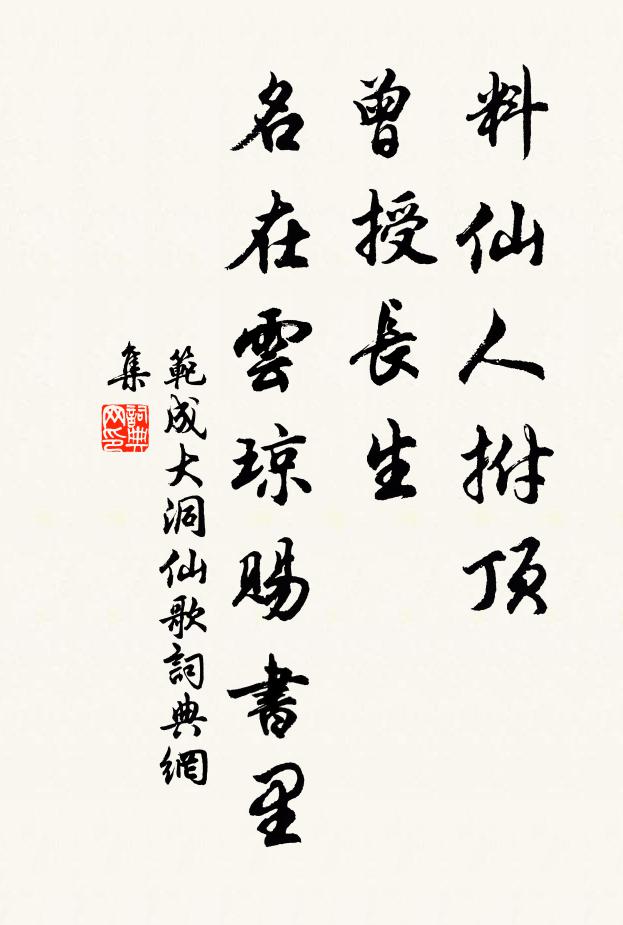 料仙人拊頂
曾授長生
名在雲琼賜書里
範成大洞仙歌詞典網
集
詞典网印